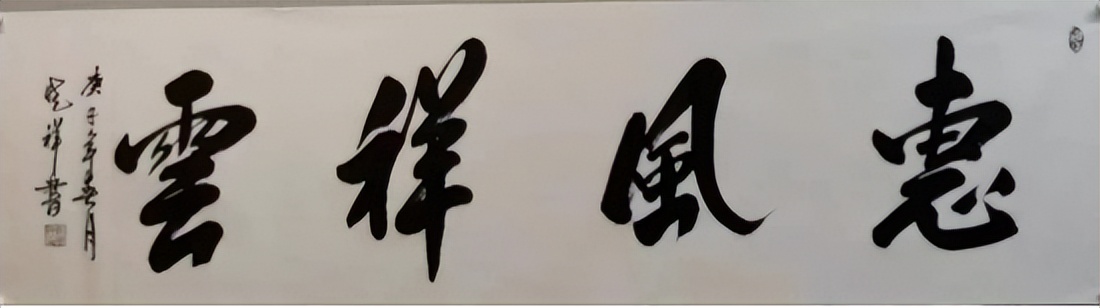 惠風祥雲
庚子年月
祥書